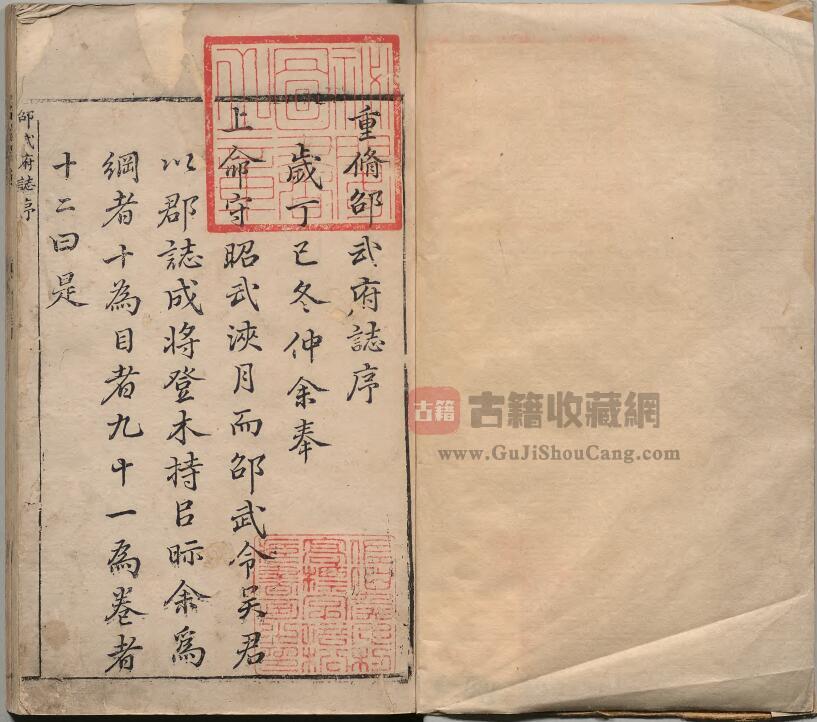 重脩邵武府誌序
歲丁巳冬仲余奉
上命守昭武浹月而邵武令吳君
以郡誌成將登木持㠯眎余為
綱者十為目者九十一為卷者
十二曰是
邵武府誌序
古籍
古籍收藏網
www.GuJiShouCang.com